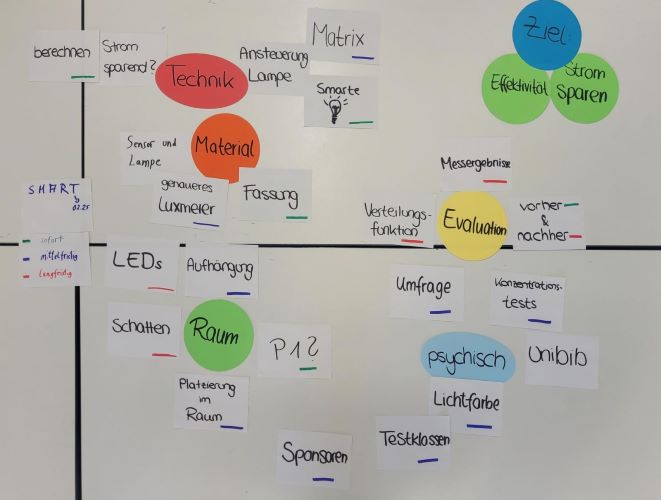 berechnen
Strom
sparend?
Technik
Ansteuerung
Lampe
Matrix
Smarte
Ziel
Effektivität
Strom
sparen
Sensor und
Lampe
Material
genaueres
Luxmeter
Fassung
Messergebnisse
Verteilungs-
funktion
Evaluation
vorher
&
nachher
SMART
02.25
sofort
mittelfristig
langfristig
LEDs
Aufhängung
Schatten
Raum
P1?
Platzierung
im
Raum
Sponsoren
Umfrage
Konzentrations-
tests
psychisch
Unibib
Lichtfarbe
Testklassen